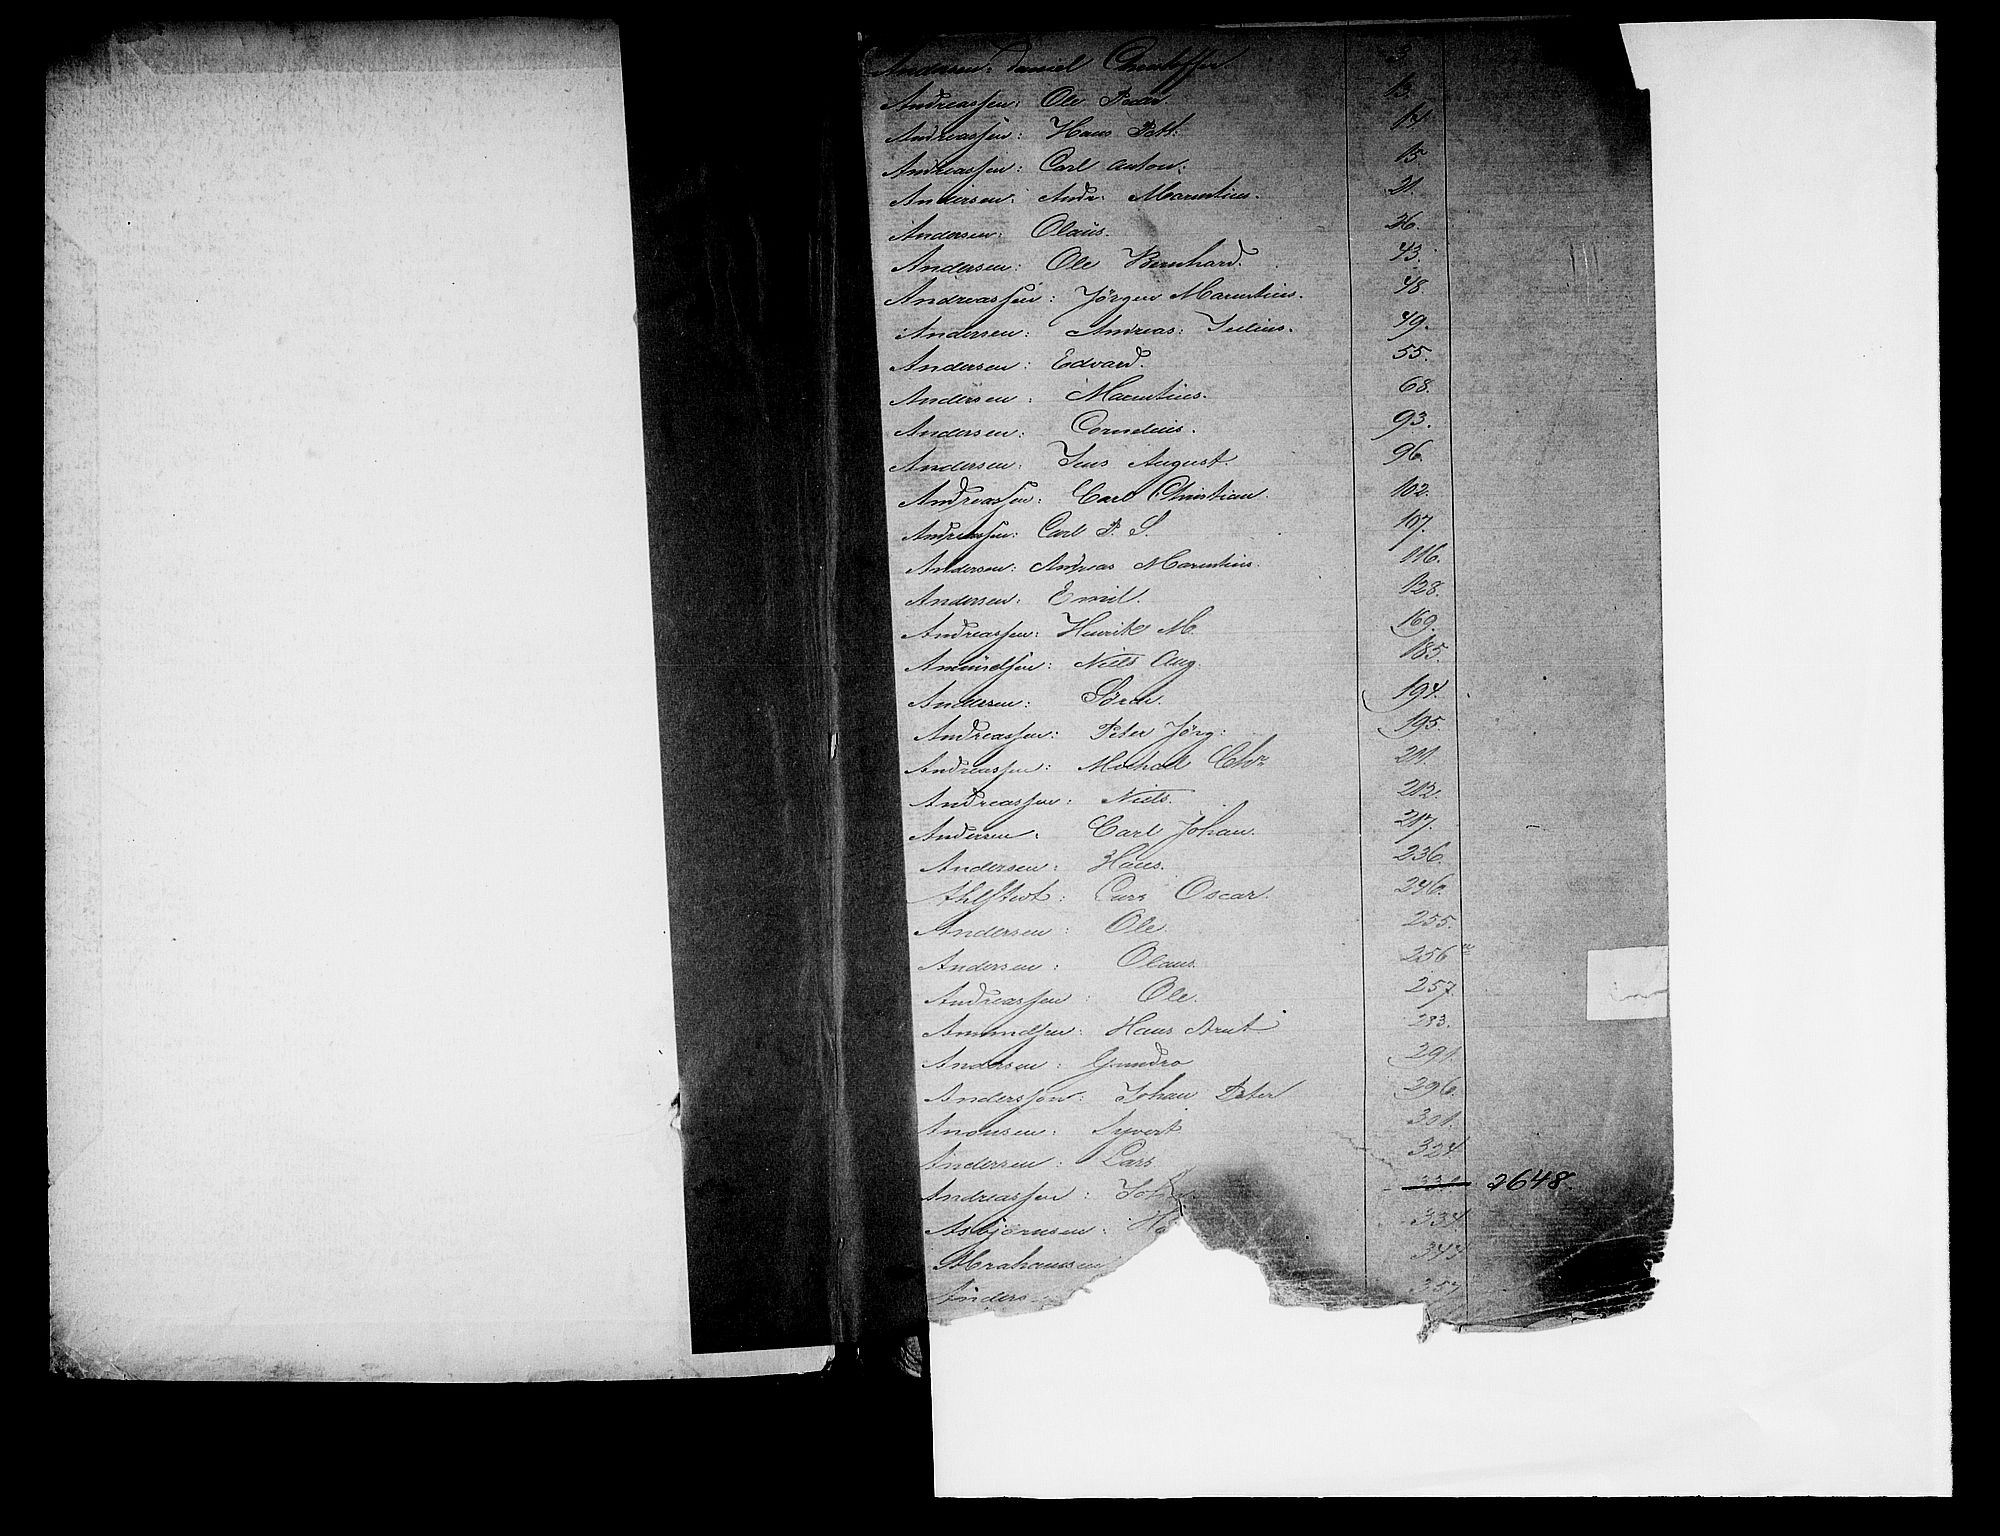 Andersen: Daniel Christoffer 3
Andreasſen: Ole Peder. 13.
Andreasſen: Hans Pett: 14.
Andreasſen: Carl Anton: 15.
Andersen: Andr: Marentius. 21.
Andersen: Olaüs. 36.
Andersen: Ole Bernhard. 43.
Andreasſen: Jörgen Marentius. 48.
Andersen: Andreas: Julius. 49.
Andersen: Edvard. 55.
Andersen: Marentius. 68.
Andersen: Cornelius. 93.
Andersen: Jens August. 96.
Andreasſen: Carl Christian. 102.
Andreasſen: Carl P. S. 107.
Andersen: Andreas Marentius. 116.
Andersen: Emil. 128.
Andreasſen: Henrik M. 169.
Amündſen: Niels Aug. 185.
Andersen: Sören. 194.
Andreasſen: Peter Jörg: 195.
Andreasſen: Michael Chr 211.
Andreasſen: Niels. 212.
Andersen: Carl Johan. 217.
Andersen: Hans. 236.
Ahlſtedt: Carl Oscar. 246.
Andersen: Ole. 255.
Andersen: Olaus. 256
Andreasſen: Ole. 257
Amundſen: Hans Arnt 283.
Andersen: Gundro 291.
Andersſon: Johan Peter 296.
Anonsen: Syvert 301.
Andersen: Lars 324
Andreasſen: Joh 331 2648.
Asbjörnsen: Ha 334
Abrahamsen 343
Anders 357